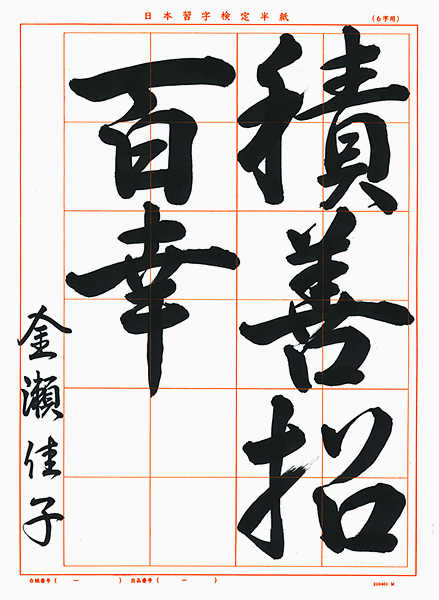 日本習字検定半紙
(6字用)
積善招
百幸
金瀬佳子
白帳番号( － ) 出品番号( － )
220401 M